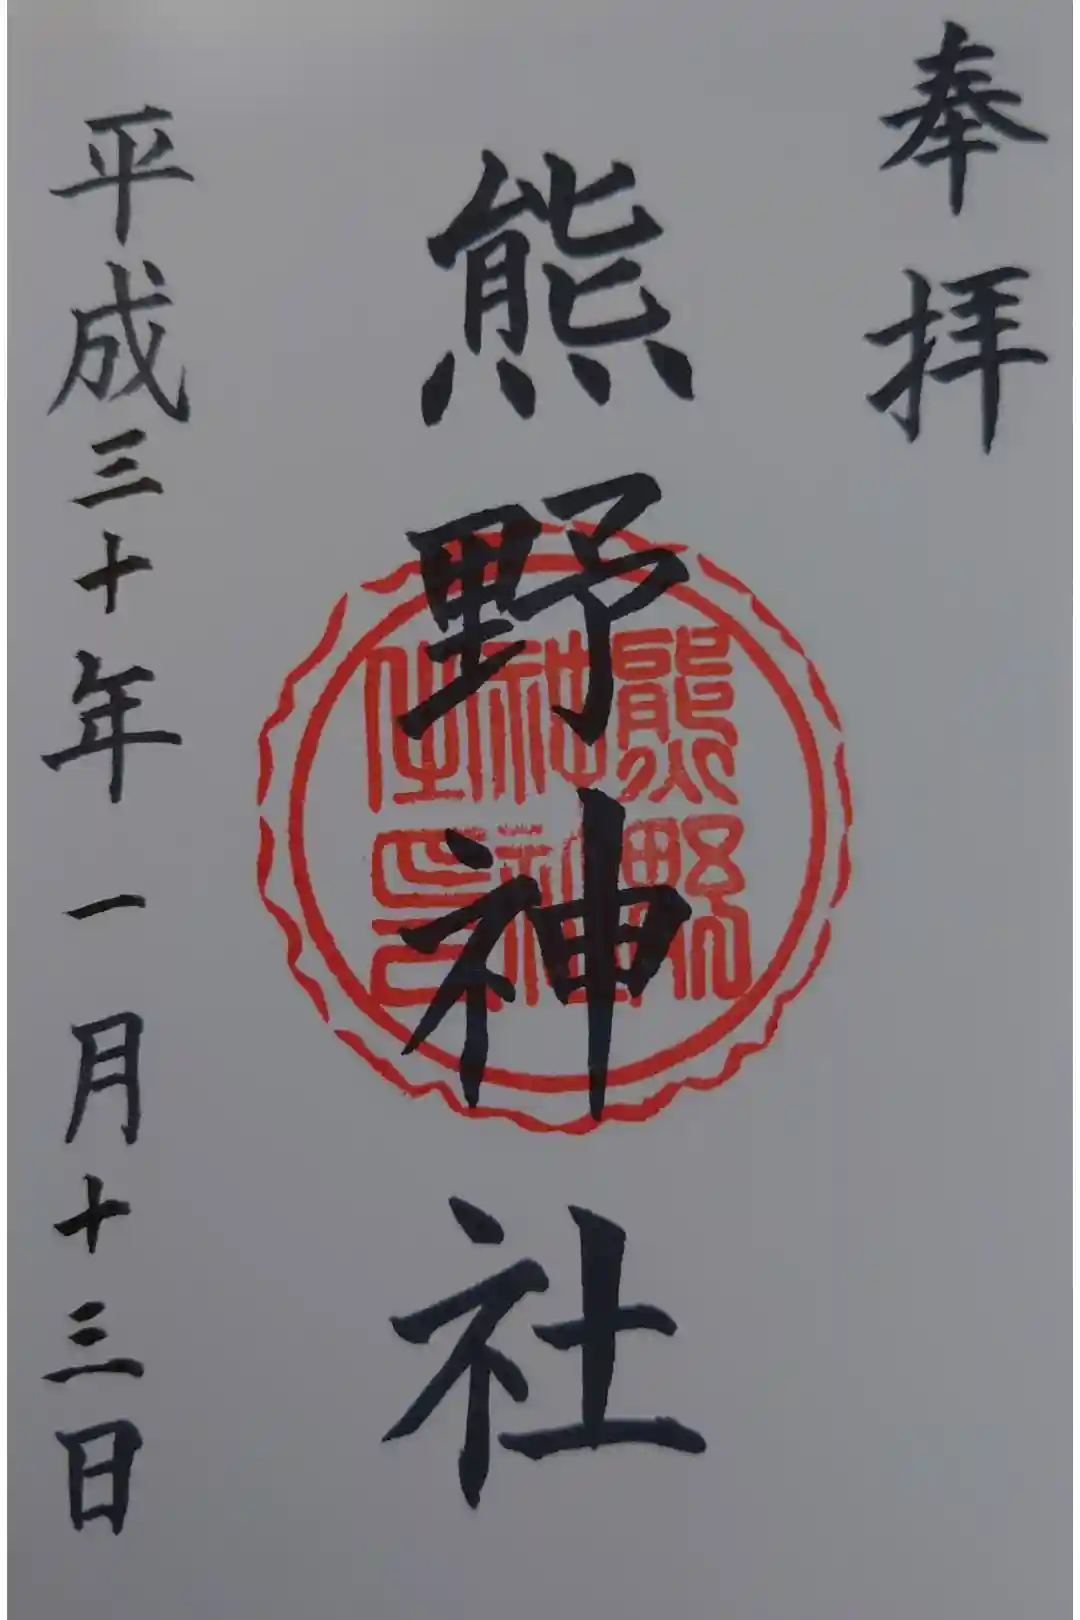 奉拝
熊野神社
熊野
神社
之印
平成三十年一月十三日